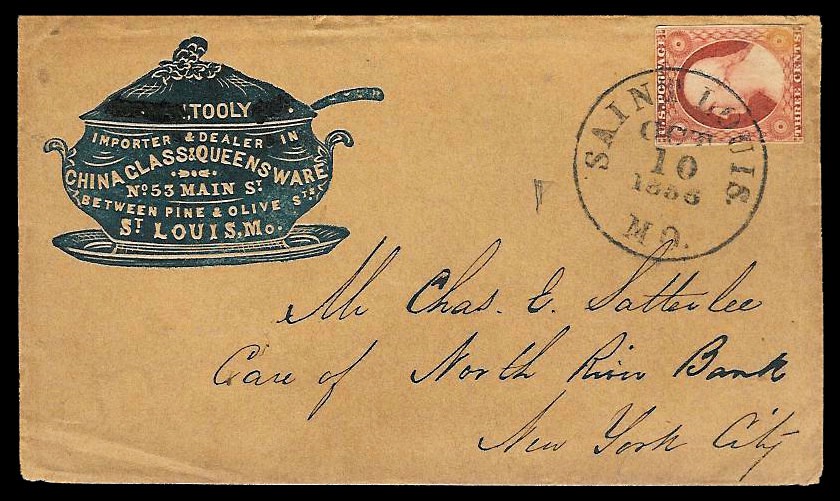 TOOLY
IMPORTER & DEALER IN
CHINA GLASS & QUEENSWARE
No. 53 MAIN ST
BETWEEN PINE & OLIVE STS
ST LOUIS, Mo.
U.S. POSTAGE
THREE CENTS
SAINT LOUIS
OCT
10
Mo.
Mr Chas. E. Satterlee
Care of North River Bank
New York City